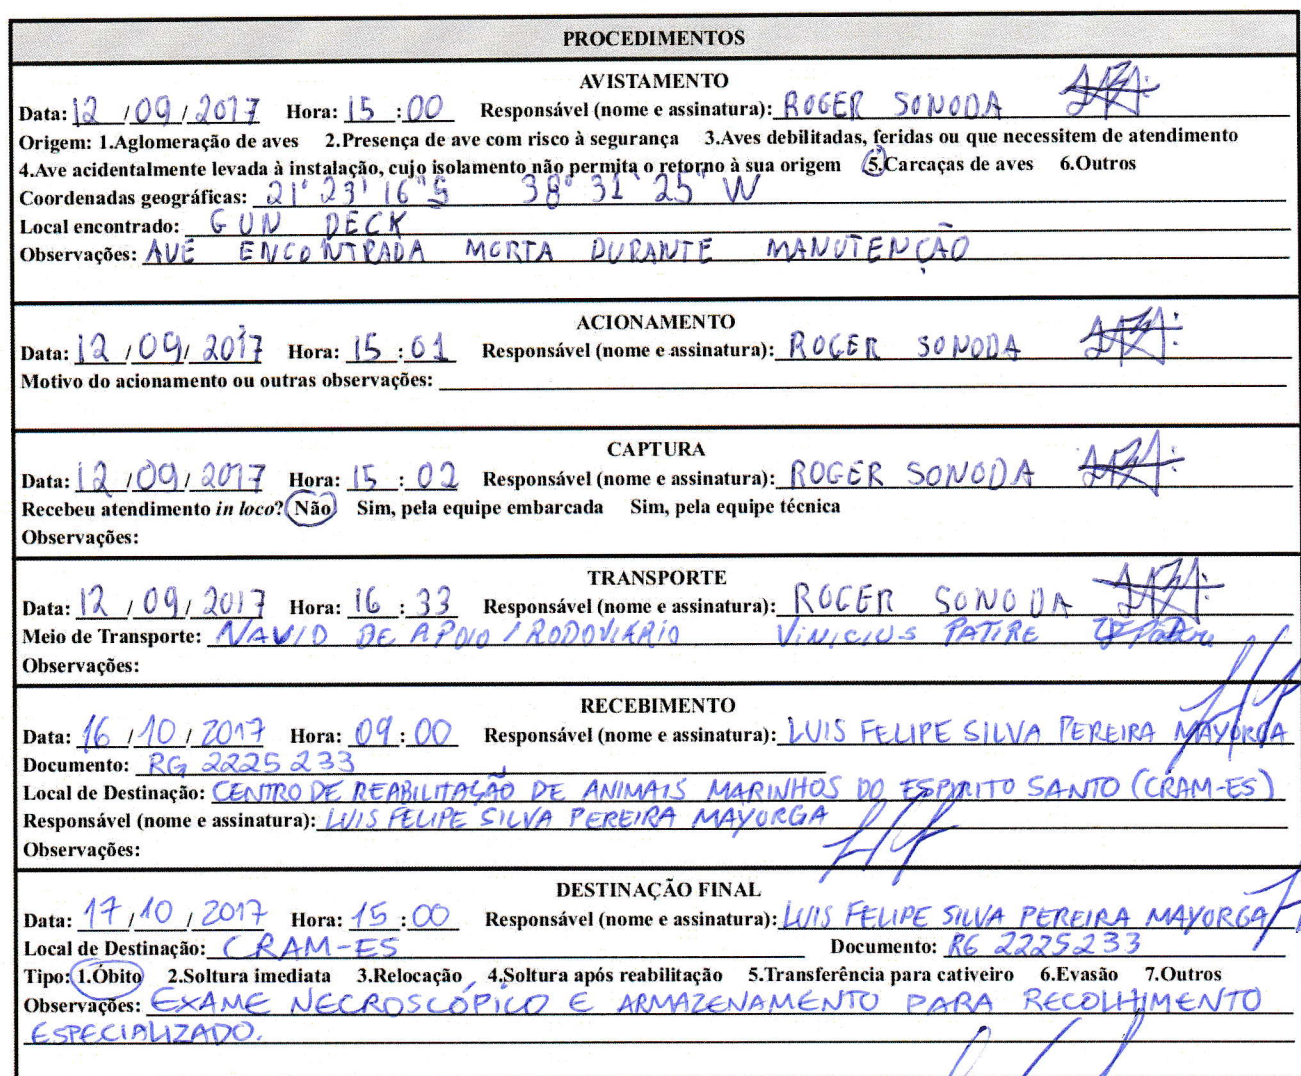 PROCEDIMENTOS
AVISTAMENTO
Data: 12 / 09 / 2017 Hora: 15 : 00 Responsável (nome e assinatura): ROGER SONODA
Origem: 1.Aglomeração de aves 2.Presença de ave com risco à segurança 3.Aves debilitadas, feridas ou que necessitem de atendimento
4.Ave acidentalmente levada à instalação, cujo isolamento não permita o retorno à sua origem 5.Carcaças de aves 6.Outros
Coordenadas geográficas: 21° 23' 16" S 38° 31' 25" W
Local encontrado: GUN DECK
Observações: AVE ENCONTRADA MORTA DURANTE MANUTENÇÃO
ACIONAMENTO
Data: 12 / 09 / 2017 Hora: 15 : 01 Responsável (nome e assinatura): ROGER SONODA
Motivo do acionamento ou outras observações:
CAPTURA
Data: 12 / 09 / 2017 Hora: 15 : 02 Responsável (nome e assinatura): ROGER SONODA
Recebeu atendimento in loco? Não Sim, pela equipe embarcada Sim, pela equipe técnica
Observações:
TRANSPORTE
Data: 12 / 09 / 2017 Hora: 16 : 33 Responsável (nome e assinatura): ROGER SONODA
Meio de Transporte: NAVIO DE APOIO / RODOVIÁRIO VINICIUS PATIRE
Observações:
RECEBIMENTO
Data: 16 / 10 / 2017 Hora: 09 : 00 Responsável (nome e assinatura): LUIS FELIPE SILVA PEREIRA MAYORGA
Documento: RG 2225233
Local de Destinação: CENTRO DE REABILITAÇÃO DE ANIMAIS MARINHOS DO ESPIRITO SANTO (CRAM-ES)
Responsável (nome e assinatura): LUIS FELIPE SILVA PEREIRA MAYORGA
Observações:
DESTINAÇÃO FINAL
Data: 17 / 10 / 2017 Hora: 15 : 00 Responsável (nome e assinatura): LUIS FELIPE SILVA PEREIRA MAYORGA
Local de Destinação: CRAM-ES Documento: RG 2225233
Tipo: 1.Óbito 2.Soltura imediata 3.Relocação 4.Soltura após reabilitação 5.Transferência para cativeiro 6.Evasão 7.Outros
Observações: EXAME NECROSCÓPICO E ARMAZENAMENTO PARA RECOLHIMENTO
ESPECIALIZADO.